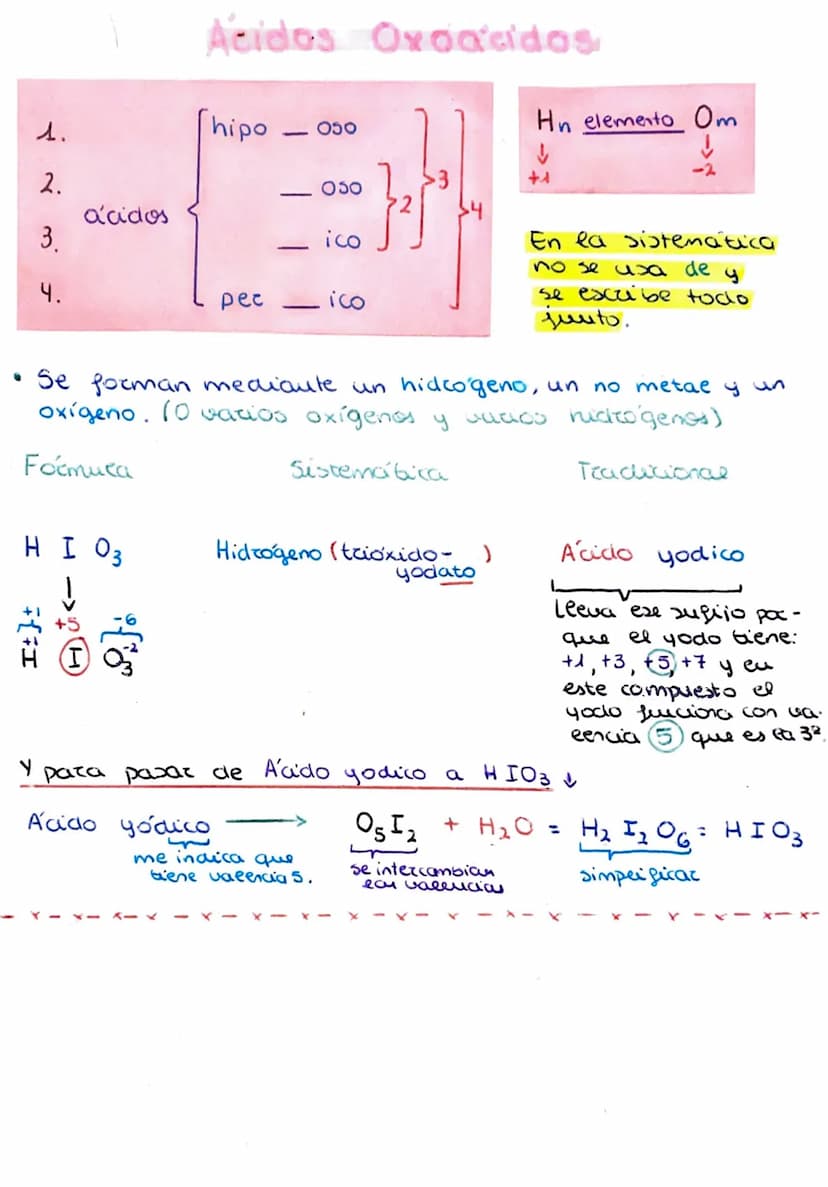 Ácidos Oxoácidos
1.
2.
3.
4.
ácidos
hipo — oso
— oso
— ico
per — ico
2
3
4
Hn elemento Om
+1
-2
En la sistemática
no se usa de y
se escribe todo
junto.
• Se forman mediante un hidrógeno, un no metal y un
oxígeno. (O varios oxígenos y varios hidrógenos)
Fórmula Sistemática Tradicional
H I O3
+1 +5 -6
+1 -2
H I O3
Hidrógeno (trióxido-
yodato)
Ácido yodico
lleva ese sufijo por-
que el yodo tiene:
+1, +3, +5, +7 y en
este compuesto el
yodo funciona con va-
lencia 5 que es la 3ª.
Y para pasar de Ácido yodico a HIO3 ↓
Ácido yódico → O5I2 + H2O = H2 I2 O6 = HIO3
me indica que
tiene valencia 5.
se intercambian
las valencias
simplificar